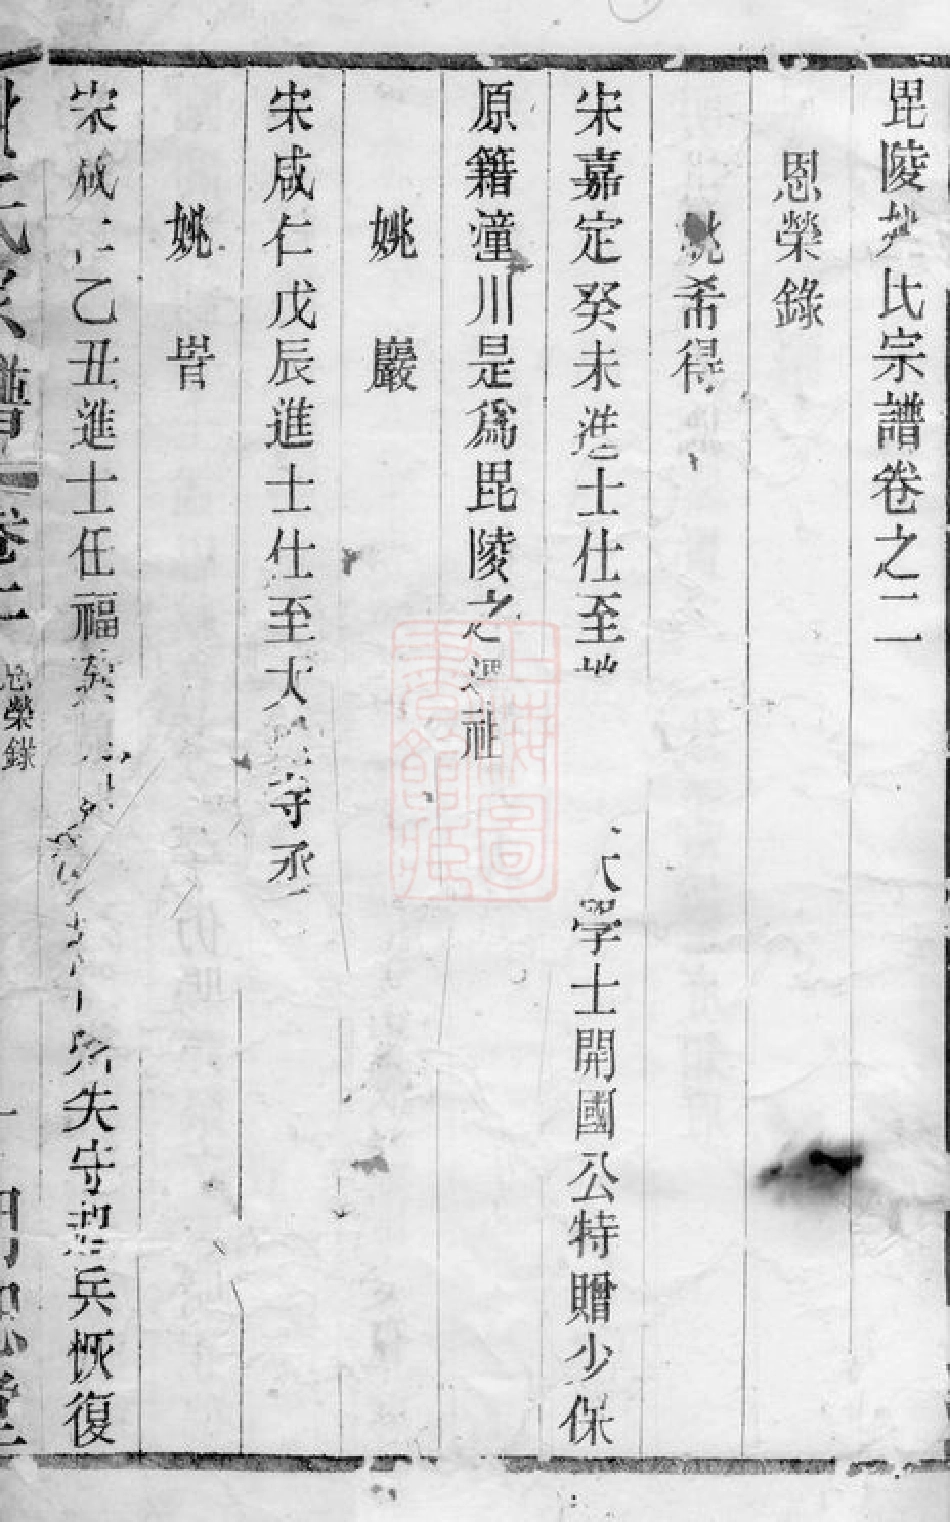 毘陵姚氏宗譜卷之二
恩榮錄
姚希得
宋嘉定癸未進士仕至大學士開國公特贈少保
原籍潼川是爲毘陵之遷祖
姚巖
宋咸仁戊辰進士仕至太寺丞
姚訔
宋咸仁乙丑進士任福失守起兵恢復
氏宗譜
卷二
恩榮錄
上海圖書館藏